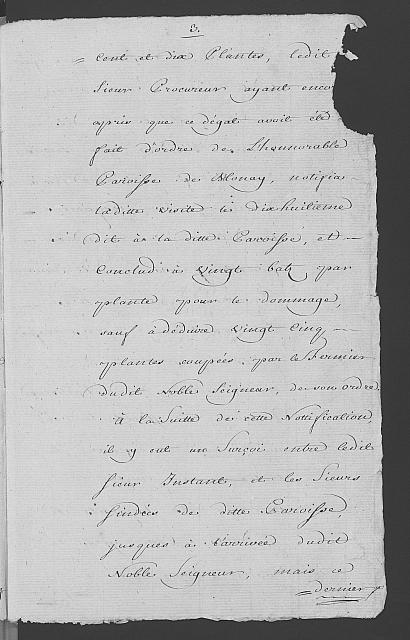 3.
cent et dix Plantes, ledit
Sieur Procureur ayant enco
apris que ce dégat avoit été
fait d'ordre de L'honnorable
Paroisse de Monay, notifia
laditte visite le dixhuitieme
dit à la ditte Paroisse, et —
Conclud à Vingt batz par
plante pour le dommage,
sauf à déduire Vingt Cinq —
plantes coupées par le fermier
dudit Noble Seigneur, de son ordre.
À la Suitte de cette Notification,
il y eut un Surçoi entre ledit
Sieur Instant, et les Sieurs
Sindics de ditte Paroisse,
jusques à l'arrivée dudit
Noble Seigneur, mais ce
dernier